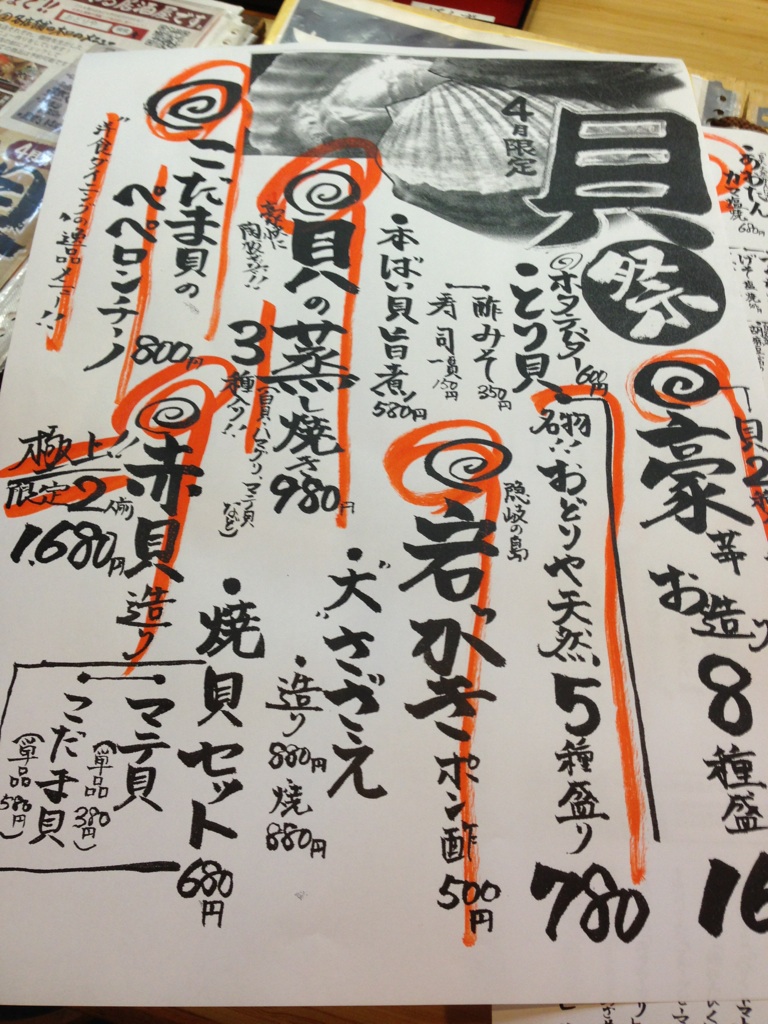 4月限定
貝祭
豪華
お造り
8種盛
16
名物!!おどりや天然
5種盛り
780
ホタテバター600円
とり貝
酢みそ350円
寿司一貫150円
隠岐の島
岩がきポン酢
500円
本ばい貝旨煮580円
大さざえ
造り880円
焼880円
貝の蒸し焼き980円
3種入り!!
など
焼貝セット
680円
マテ貝
(単品380円)
こだま貝
(単品580円)
こだま貝の
ペペロンチーノ
800円
洋食ダイニングの逸品メニュー!!
赤貝造り
極上!!
限定2人前
1,680円